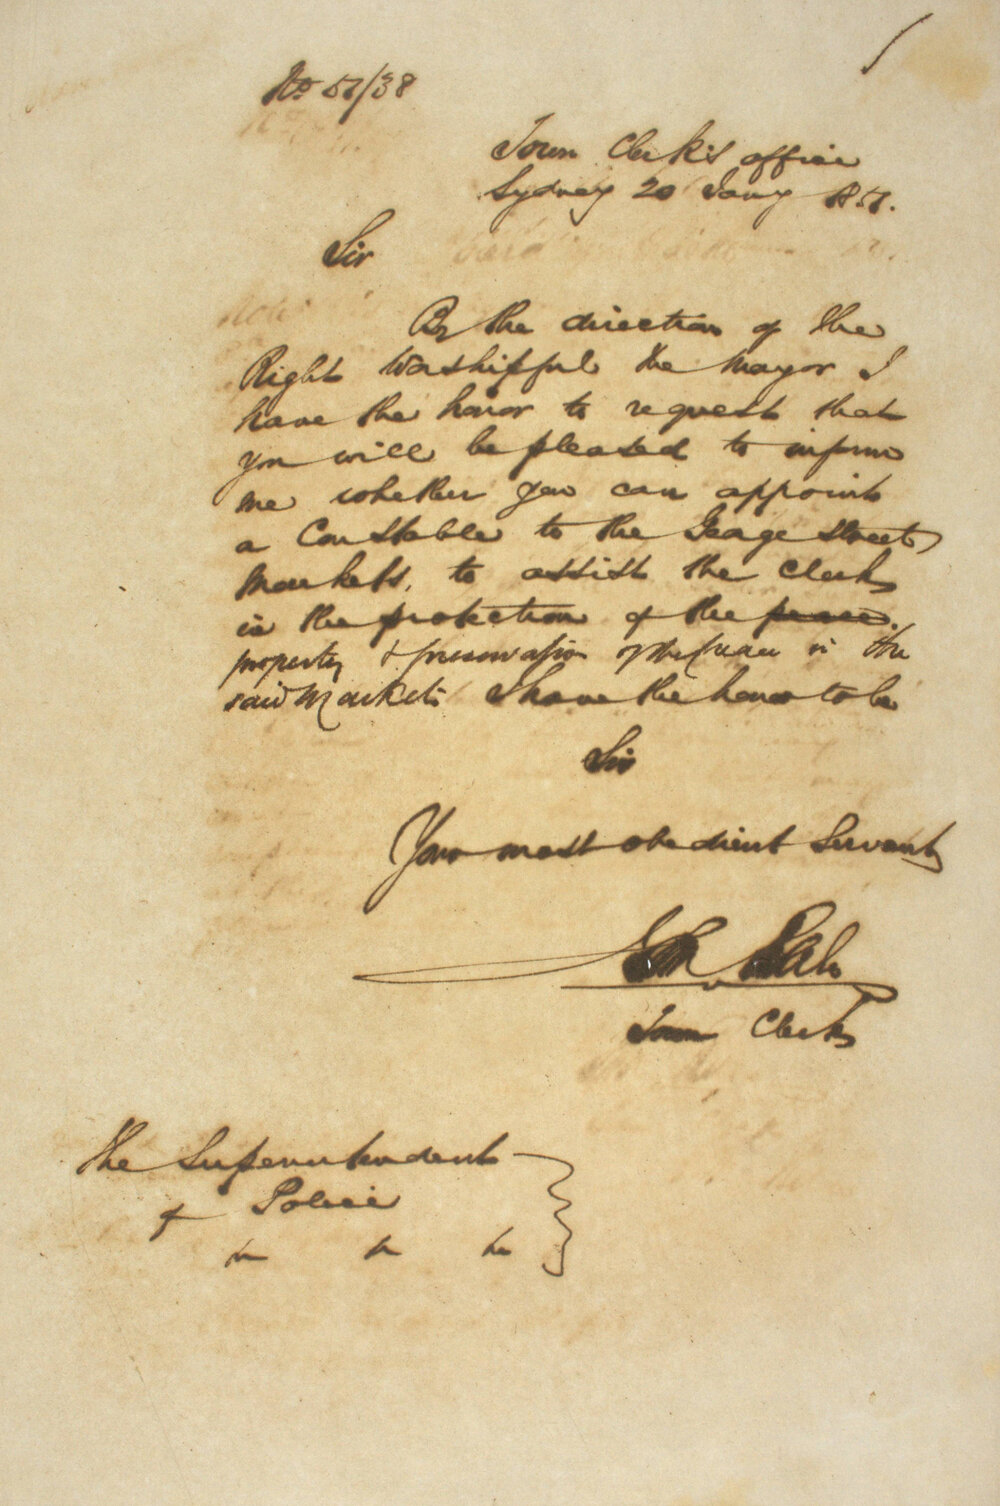 No 57/38
Town Clerk's office
Sydney 20 Jany 1857.
Sir
By the direction of the
Right Worshipful the Mayor I
have the honor to request that
you will be pleased to inform
me whether you can appoint
a Constable to the George Street
Markets, to assist the Clerk
in the protection of the peace.
property & preservation of the peace in the
said Markets I have the honor to be
Sir
Your most obedient Servant
Town Clerk
The Superintendent
of Police